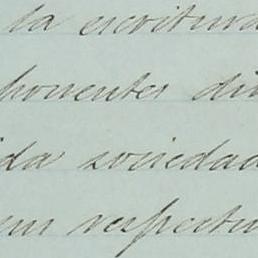 la escritura
ponentes di
ida sociedad
en respectiv